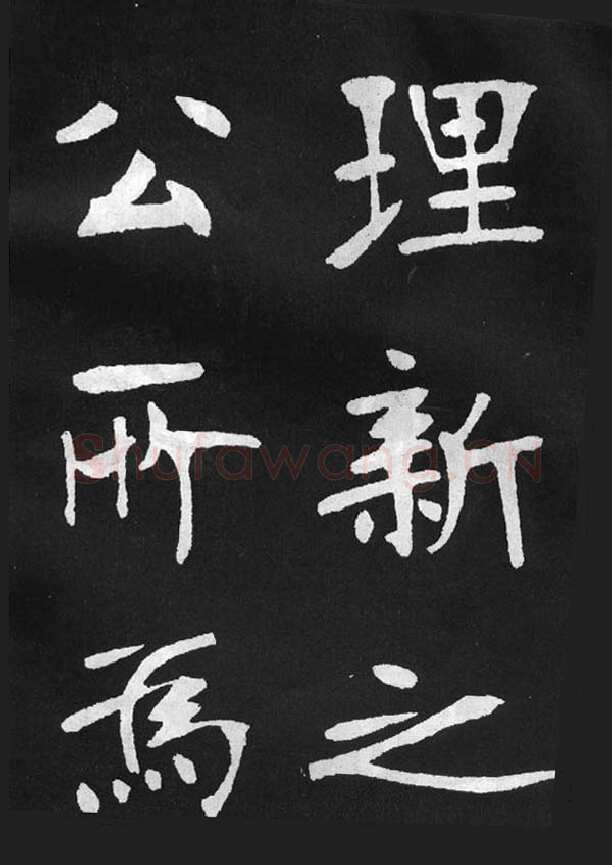 理新之
公所為
Shufawang.CN